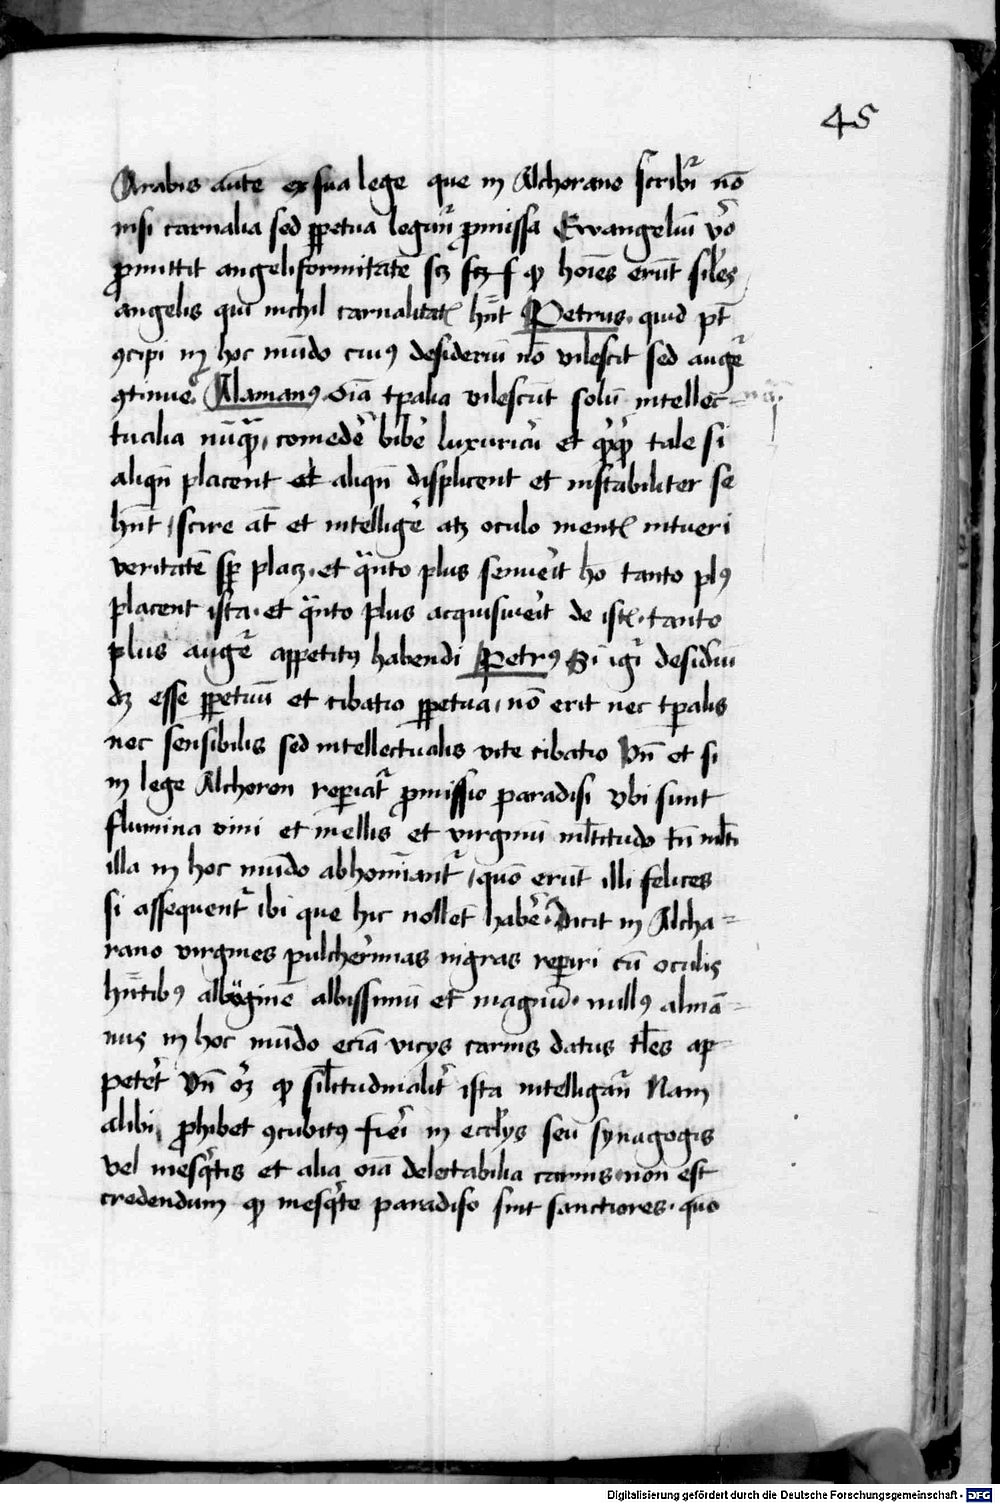 45
Arabis aūte ex sua lege que in Alchorano scribr̄ nō
nisi carnalia sed ꝑpetua legunr̄ ꝓmissa Ewangeliū v̄o
ꝓmittit angeliformitatē scꝫ ꝙ hoīes erūt sil̄es
angelis qui nichil carnalitatꝭ hn̄t Petrus. quid pt̄
ꝯcipi in hoc mūdo cuiꝰ desideriū nō vilescit sed augēr
ꝯtinue. Alamanꝰ. oīa tꝑalia vilescūt solū intellec=
tualia nūqꝫ, comedē bibē luxuriāi et q̄ꝗ tale si
aliqn̄ placent et aliqn̄ displicent et instabiliter se
hn̄t / scire at̄ et intelligē atꝫ oculo mentꝭ intueri
veritatē sꝑ placꝫ. et q̄nto plus senuēit ho tanto plꝰ
placent ista. et q̄nto plus acquisiuēit de istꝭ. tanto
plus augēr appetitꝰ habendi Petrꝰ Si igr̄ desid̄iū
dꝫ esse ꝑpetuū et cibatio ꝑpetua, nō erit nec tꝑalis
nec sensibilis sed intellectualis vite cibatio Vn̄ et si
in lege Alchoron reꝑiatr̄ ꝓmissio paradisi vbi sunt
flumina vini et mellis et virginū ml̄titudo tn̄ ml̄ti
illa in hoc mūdo abhomīantr̄, quō erūt illi felices
si assequentr̄ ibi que hic nollēt habē. Dicit in Alcha=
rano virgines pulchēimas nigras reꝑiri cū oculis
hn̄tibꝰ albuginē albissimū et magnū. nullꝰ almā=
nus in hoc mūdo eciā vicys carnis datus tl̄es ap=
petēt Vn̄ oꝫ ꝙ sil̄itudinalit̄ ista intelliganr̄ Nam
alibi ꝓhibet ꝯcubitꝰ fiēi in eccl̄ys seu synagogis
vel mesq̄tis et alia oīa delectabilia carnis. non est
credendum ꝙ mesq̄te paradiso sint sanctiores. quō
Digitalisierung gefördert durch die Deutsche Forschungsgemeinschaft - DFG